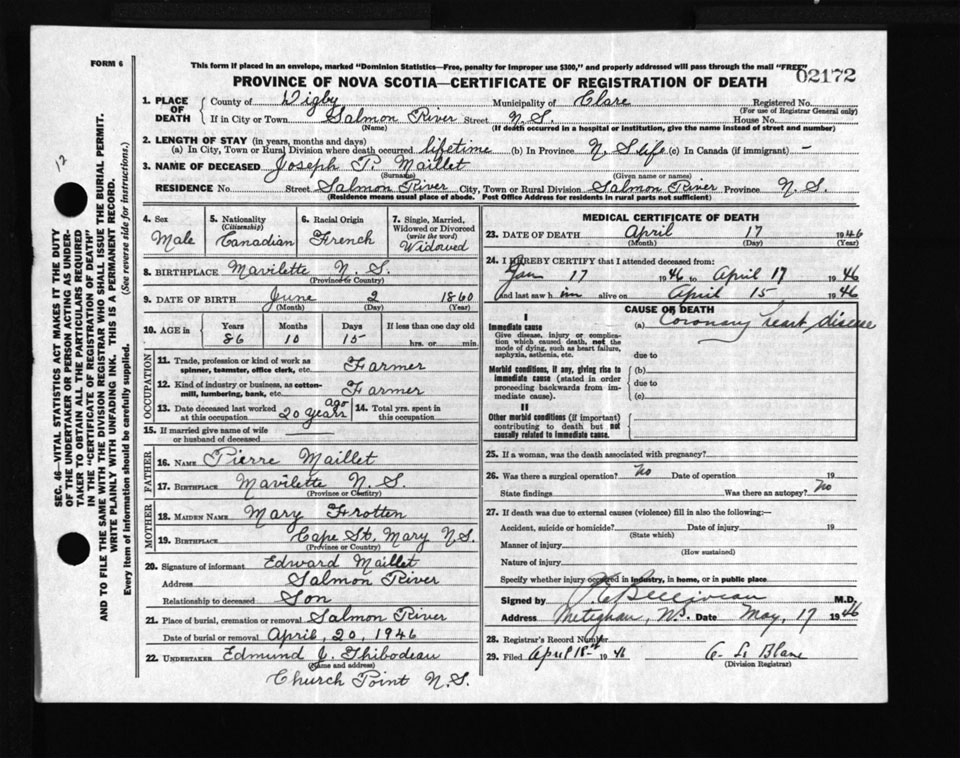 FORM 6
This form if placed in an envelope, marked "Dominion Statistics—Free, penalty for improper use $300," and properly addressed will pass through the mail "FREE"
02172
PROVINCE OF NOVA SCOTIA—CERTIFICATE OF REGISTRATION OF DEATH
1. PLACE OF DEATH County of Digby Municipality of Clare Registered No.
(For use of Registrar General only)
If in City or Town Salmon River Street N. S. House No.
(Name) (If death occurred in a hospital or institution, give the name instead of street and number)
2. LENGTH OF STAY (in years, months and days)
(a) In City, Town or Rural Division where death occurred lifetime (b) In Province N. S life (c) In Canada (if immigrant) –
3. NAME OF DECEASED Joseph P. Maillet
(Surname) (Given name or names)
RESIDENCE No. Street Salmon River City, Town or Rural Division Salmon River Province N. S.
(Residence means usual place of abode. Post Office Address for residents in rural parts not sufficient)
4. Sex Male
5. Nationality (Citizenship) Canadian
6. Racial Origin French
7. Single, Married, Widowed or Divorced (write the word) Widowed
8. BIRTHPLACE Mavilette N. S.
(Province or Country)
9. DATE OF BIRTH June 2 1860
(Month) (Day) (Year)
10. AGE in Years Months Days If less than one day old
86 10 15 hrs. or min.
OCCUPATION
11. Trade, profession or kind of work as spinner, teamster, office clerk, etc. Farmer
12. Kind of industry or business, as cotton-mill, lumbering, bank, etc. Farmer
13. Date deceased last worked at this occupation 20 years ago
14. Total yrs. spent in this occupation
15. If married give name of wife or husband of deceased
FATHER
16. NAME Pierre Maillet
17. BIRTHPLACE Mavilette N. S.
(Province or Country)
MOTHER
18. MAIDEN NAME Mary Frotten
19. BIRTHPLACE Cape St. Mary N.S.
(Province or Country)
20. Signature of informant Edward Maillet
Address Salmon River
Relationship to deceased Son
21. Place of burial, cremation or removal Salmon River
Date of burial or removal April, 20, 1946
22. UNDERTAKER Edmund J. Thibodeau
(Name and address)
Church Point N.S.
MEDICAL CERTIFICATE OF DEATH
23. DATE OF DEATH April 17 1946
(Month) (Day) (Year)
24. I HEREBY CERTIFY that I attended deceased from:
Jan 17 1946 to April 17 1946
and last saw him alive on April 15 1946
CAUSE OF DEATH
I
Immediate cause
Give disease, injury or complication which caused death, not the mode of dying, such as heart failure, asphyxia, asthenia, etc.
(a) Coronary heart disease
due to
Morbid conditions, if any, giving rise to immediate cause (stated in order proceeding backwards from immediate cause).
(b)
due to
(c)
II
Other morbid conditions (if important) contributing to death but not causally related to immediate cause.
25. If a woman, was the death associated with pregnancy?
26. Was there a surgical operation? No Date of operation 19
State findings Was there an autopsy? No
27. If death was due to external causes (violence) fill in also the following:—
Accident, suicide or homicide? Date of injury 19
(State which)
Manner of injury
(How sustained)
Nature of injury
Specify whether injury occurred in industry, in home, or in public place
Signed by M.D.
Address Meteghan, N.S. Date May, 17 1946
28. Registrar's Record Number
29. Filed April 18th 1946
(Division Registrar)
SEC. 46—VITAL STATISTICS ACT MAKES IT THE DUTY
OF THE UNDERTAKER OR PERSON ACTING AS UNDER-
TAKER TO OBTAIN ALL THE PARTICULARS REQUIRED
IN THE "CERTIFICATE OF REGISTRATION OF DEATH"
AND TO FILE THE SAME WITH THE DIVISION REGISTRAR WHO SHALL ISSUE THE BURIAL PERMIT.
WRITE PLAINLY WITH UNFADING INK. THIS IS A PERMANENT RECORD.
Every item of information should be carefully supplied. (See reverse side for instructions.)